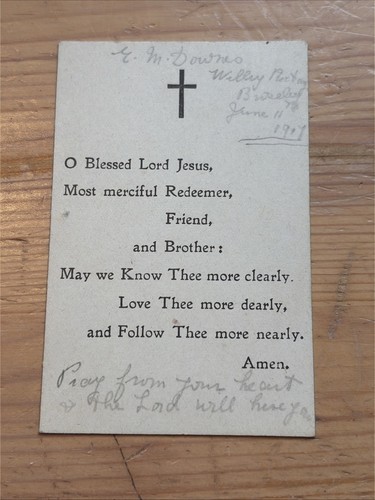 E. M. Downs
Willey
June 11th
O Blessed Lord Jesus,
Most merciful Redeemer,
Friend,
and Brother:
May we Know Thee more clearly.
Love Thee more dearly,
and Follow Thee more nearly.
Amen.
Pray from your heart
& the Lord will hear you